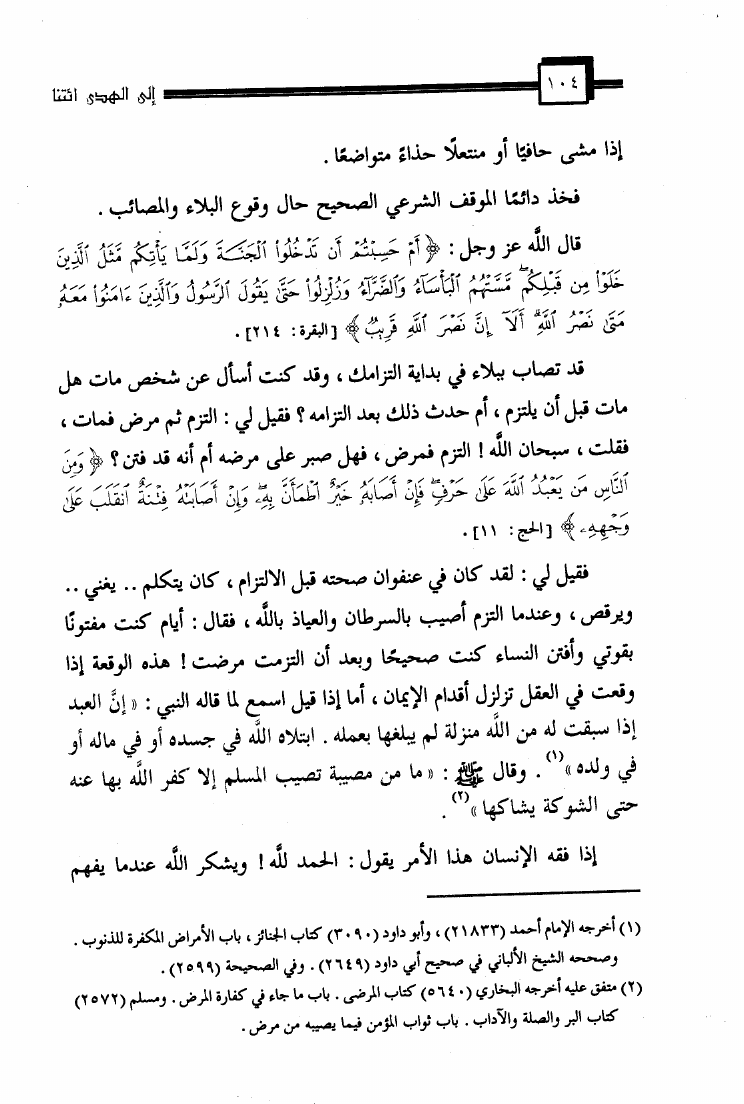 ١٠٤
إلى الهدى ائتنا
إذا مشى حافيًا أو منتعلًا حذاءً متواضعًا .
فخذ دائمًا الموقف الشرعي الصحيح حال وقوع البلاء والمصائب .
قال اللَّه عز وجل : ﴿ أَمْ حَسِبْتُمْ أَن تَدْخُلُوا۟ ٱلْجَنَّةَ وَلَمَّا يَأْتِكُم مَّثَلُ ٱلَّذِينَ
خَلَوْا۟ مِن قَبْلِكُم ۖ مَّسَّتْهُمُ ٱلْبَأْسَآءُ وَٱلضَّرَّآءُ وَزُلْزِلُوا۟ حَتَّىٰ يَقُولَ ٱلرَّسُولُ وَٱلَّذِينَ ءَامَنُوا۟ مَعَهُۥ
مَتَىٰ نَصْرُ ٱللَّهِ ۗ أَلَآ إِنَّ نَصْرَ ٱللَّهِ قَرِيبٌ ﴾ [البقرة: ٢١٤] .
قد تصاب ببلاء في بداية التزامك ، وقد كنت أسأل عن شخص مات هل
مات قبل أن يلتزم ، أم حدث ذلك بعد التزامه ؟ فقيل لي : التزم ثم مرض فمات ،
فقلت ، سبحان اللَّه ! التزم فمرض ، فهل صبر على مرضه أم أنه قد فتن ؟ ﴿ وَمِنَ
ٱلنَّاسِ مَن يَعْبُدُ ٱللَّهَ عَلَىٰ حَرْفٍ ۖ فَإِنْ أَصَابَهُۥ خَيْرٌ ٱطْمَأَنَّ بِهِۦ ۖ وَإِنْ أَصَابَتْهُ فِتْنَةٌ ٱنقَلَبَ عَلَىٰ
وَجْهِهِۦ ﴾ [الحج: ١١] .
فقيل لي : لقد كان في عنفوان صحته قبل الالتزام ، كان يتكلم .. يغني ..
ويرقص ، وعندما التزم أصيب بالسرطان والعياذ باللَّه ، فقال : أيام كنت مفتونًا
بقوتي وأفتن النساء كنت صحيحًا وبعد أن التزمت مرضت ! هذه الوقعة إذا
وقعت في العقل تزلزل أقدام الإيمان ، أما إذا قيل اسمع لما قاله النبي : « إنَّ العبد
إذا سبقت له من اللَّه منزلة لم يبلغها بعمله . ابتلاه اللَّه في جسده أو في ماله أو
في ولده »(١) . وقال ﷺ : « ما من مصيبة تصيب المسلم إلا كفر اللَّه بها عنه
حتى الشوكة يشاكها »(٢) .
إذا فقه الإنسان هذا الأمر يقول : الحمد للَّه ! ويشكر اللَّه عندما يفهم
(١) أخرجه الإمام أحمد (٢١٨٣٣) ، وأبو داود (٣٠٩٠) كتاب الجنائز ، باب الأمراض المكفرة للذنوب .
وصححه الشيخ الألباني في صحيح أبي داود (٢٦٤٩) . وفي الصحيحة (٢٥٩٩) .
(٢) متفق عليه أخرجه البخاري (٥٦٤٠) كتاب المرضى . باب ما جاء في كفارة المرض . ومسلم (٢٥٧٢)
كتاب البر والصلة والآداب . باب ثواب المؤمن فيما يصيبه من مرض .